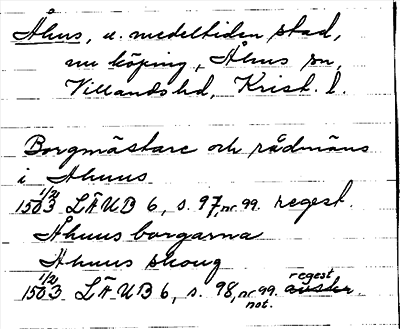 Åhus, u. medeltiden stad,
nu köping, Åhus sn,
Villands hd, Krist. l.
Borgmästare och rådmäns
i Ahuus
1503 1/2 LÄUB 6, s. 97, nr 99. regest.
Åhuus borgarna
Ahuus skoug
1503 1/2 LÄUB 6, s. 98, nr 99. regest
not.